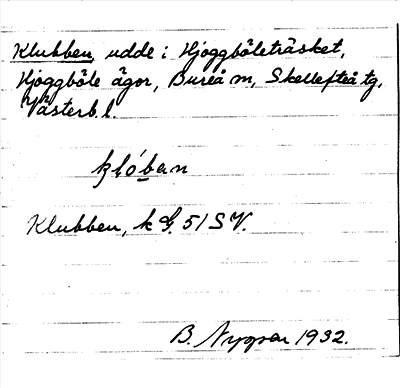 Klubben, udde i Hjoggböleträsket,
Hjoggböle ägor, Bureå sn, Skellefteå tg,
Västerb. l.
klóban
Klubben, k G. 51 SV.
B. Nygren 1932.